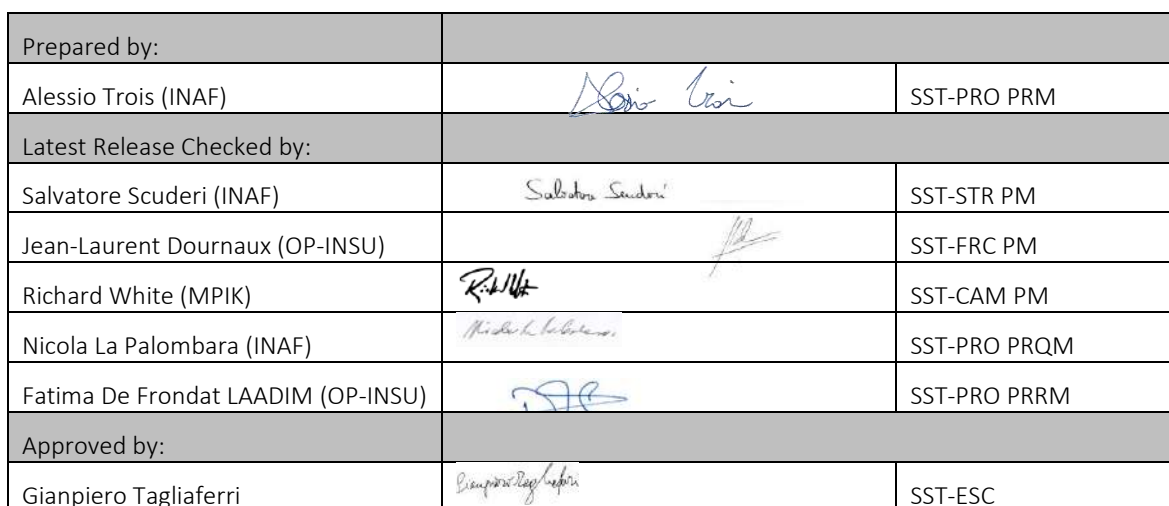 Prepared by:
Alessio Trois (INAF) Alessio Trois SST-PRO PRM
Latest Release Checked by:
Salvatore Scuderi (INAF) Salvatore Scuderi SST-STR PM
Jean-Laurent Dournaux (OP-INSU) SST-FRC PM
Richard White (MPIK) SST-CAM PM
Nicola La Palombara (INAF) SST-PRO PRQM
Fatima De Frondat LAADIM (OP-INSU) SST-PRO PRRM
Approved by:
Gianpiero Tagliaferri Gianpiero Tagliaferri SST-ESC